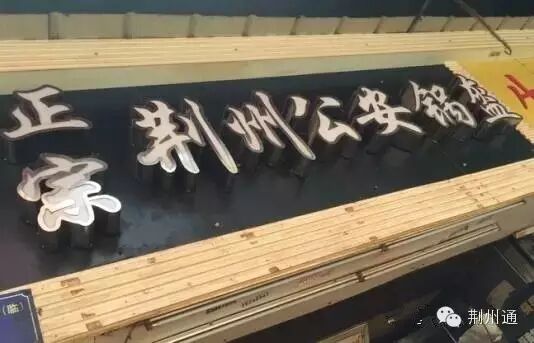 正宗
荆州公安锅盔
荆州通